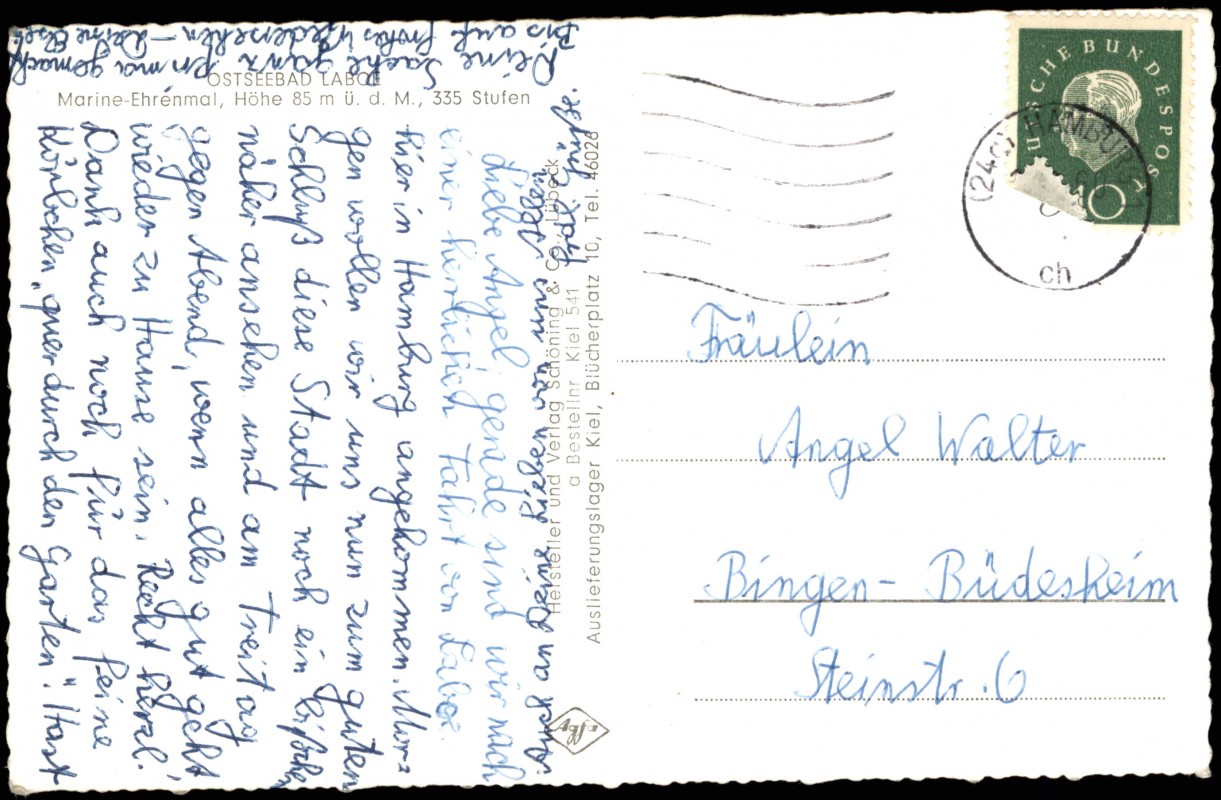 OSTSEEBAD LABOE
Marine-Ehrenmal, Höhe 85 m ü. d. M., 335 Stufen
Liebe Angel, gerade sind wir nach
einer herrlich Fahrt von Laboe
hier in Hamburg angekommen. Mor=
gen wollen wir uns nun zum guten
Schluß diese Stadt noch ein bißchen
näher ansehen und am Freitag
gegen Abend, wenn alles gut geht
wieder zu Hause sein. Recht herzl.
Dank auch noch für das feine
Körbchen „quer durch den Garten". Hast
Deine Sache ganz prima gemacht
Bis auf frohes Wiedersehen – Deine
Auch an Deine Lieben von uns allen
frdl. Grüße.
Hersteller und Verlag Schöning & Co., Lübeck
a Bestellnr. Kiel 541
Auslieferungslager Kiel, Blücherplatz 10, Tel. 46026
DEUTSCHE BUNDESPOST
10
(24a) HAMBURG 1
ch
Fräulein
Angel Walter
Bingen-Büdesheim
Steinstr. 6